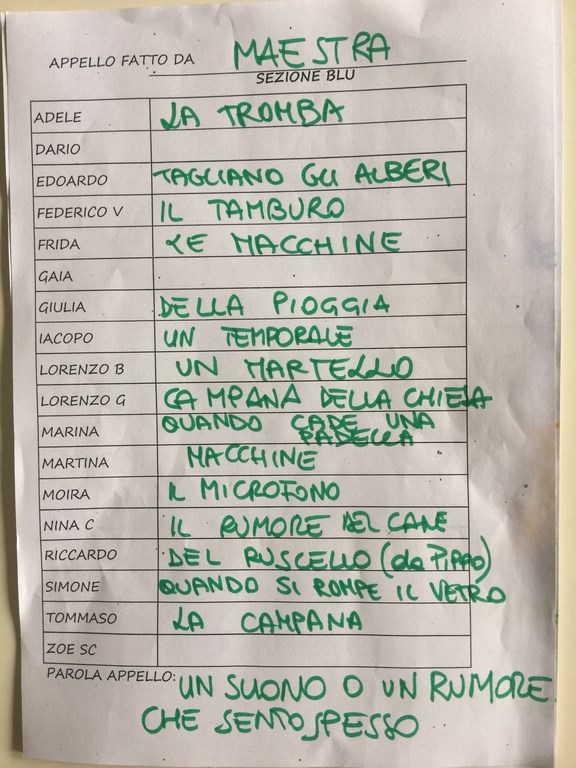 APPELLO FATTO DA MAESTRA
SEZIONE BLU
ADELE LA TROMBA
DARIO
EDOARDO TAGLIANO GLI ALBERI
FEDERICO V IL TAMBURO
FRIDA LE MACCHINE
GAIA
GIULIA DELLA PIOGGIA
IACOPO UN TEMPORALE
LORENZO B UN MARTELLO
LORENZO G CAMPANA DELLA CHIESA
MARINA QUANDO CADE UNA
PADELLA
MARTINA MACCHINE
MOIRA IL MICROFONO
NINA C IL RUMORE DEL CANE
RICCARDO DEL RUSCELLO (da PIPPO)
SIMONE QUANDO SI ROMPE IL VETRO
TOMMASO LA CAMPANA
ZOE SC
PAROLA APPELLO: UN SUONO O UN RUMORE
CHE SENTO SPESSO